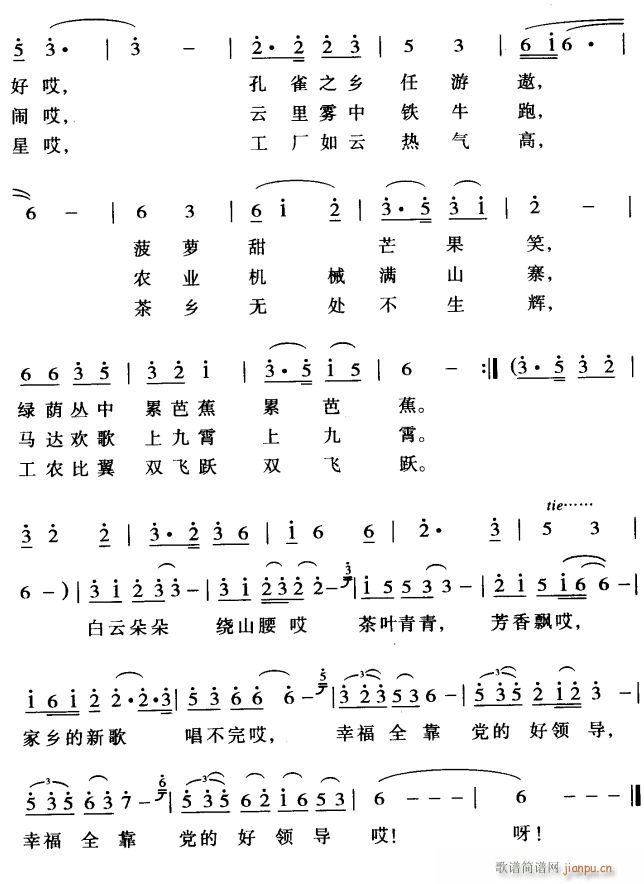 好哎， 孔雀之乡 任游 遨，
闹哎， 云里雾中 铁牛 跑，
星哎， 工厂如云 热气 高，
菠萝甜 芒果笑，
农业机械满山寨，
茶乡无处不生辉，
绿荫丛中 累芭蕉 累芭蕉。
马达欢歌 上九霄 上九霄。
工农比翼 双飞跃 双飞跃。
tie……
白云朵朵 绕山腰哎 茶叶青青， 芳香飘哎，
家乡的新歌 唱不完哎， 幸福全靠 党的好领导，
幸福全靠 党的好领导 哎！ 呀！
歌谱简谱网 jianpu.cn